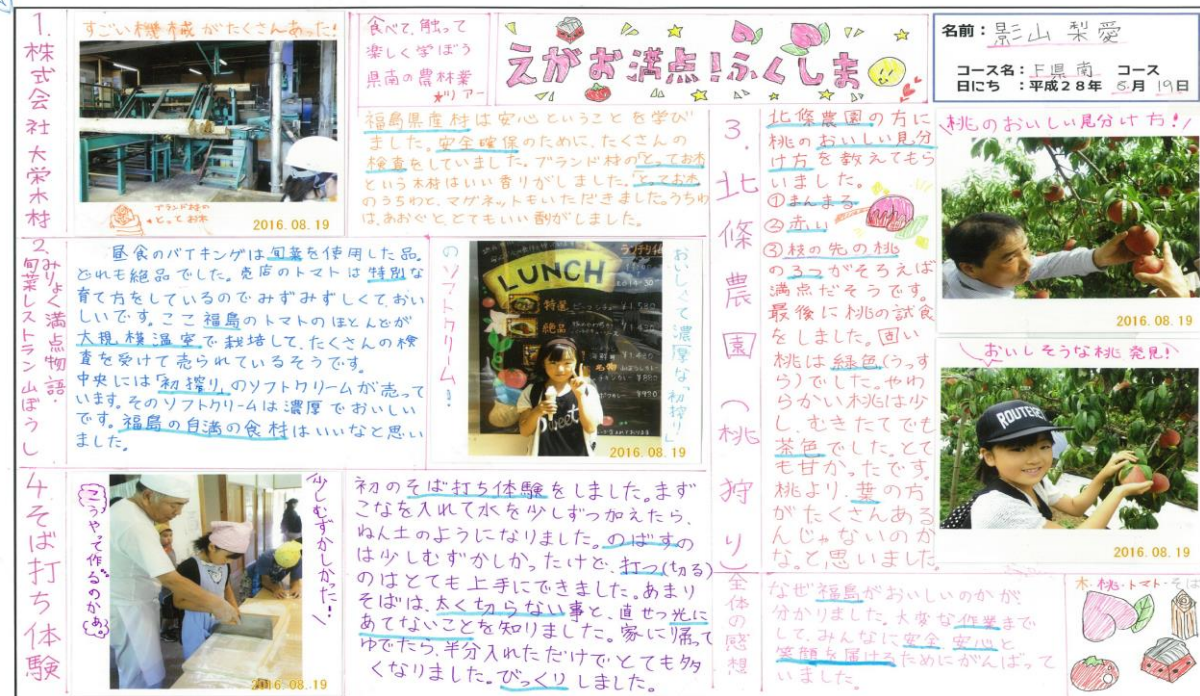 えがお満点！ふくしま
食べて、触って
楽しく学ぼう
県南の農林業
★ツアー
名前：影山 梨愛
コース名：F県南 コース
日にち ：平成28年 8月 19日
1.株式会社大栄木材
すごい機械がたくさんあった！
2016.08.19
ブランド材の
とってお木
福島県産材は安心ということを学び
ました。安全確保のために、たくさんの
検査をしていました。ブランド材の「とってお木」
という木材はいい香りがしました。「とってお木」
のうちわと、マグネットもいただきました。うちわ
は、あおぐととてもいい香りがしました。
2.みりょく満点物語
旬菜レストラン山ぼうし
昼食のバイキングは旬菜を使用した品。
どれも絶品でした。売店のトマトは特別な
育て方をしているのでみずみずしくて、おい
しいです。ここ福島のトマトのほとんどが
大規模温室で栽培して、たくさんの検
査を受けて売られているそうです。
中央には「初搾り」のソフトクリームが売って
います。そのソフトクリームは濃厚でおいしい
です。福島の自満の食材はいいなと思い
ました。
おいしくて濃厚な「初搾り」
のソフトクリーム！
LUNCH
特選
絶品
名物
2016.08.19
3.北條農園（桃狩り）
北條農園の方に
桃のおいしい見分
け方を教えてもら
いました。
①まんまる
②赤い
③枝の先の桃
の3つがそろえば
満点だそうです。
最後に桃の試食
をしました。固い
桃は緑色（うっす
ら）でした。やわ
らかい桃は少
し、むきたてでも
茶色でした。とて
も甘かったです。
桃より、葉の方
がたくさんある
んじゃないのか
な。と思いました
桃のおいしい見分け方！
2016.08.19
おいしそうな桃発見！
ROUTE
2016.08.19
4.そば打ち体験
こうやって作るのかぁ。
少しむずかしかった！
2016.08.19
初のそば打ち体験をしました。まず
こなを入れて水を少しずつ加えたら、
ねん土のようになりました。のばすの
は少しむずかしかったけど、打つ（切る）
のはとても上手にできました。あまり
そばは、太く切らない事と、直せつ光に
あてないことを知りました。家に帰って
ゆでたら、半分入れただけでとても多
くなりました。びっくりしました。
全体の感想
なぜ福島がおいしいのかが、
分かりました。大変な作業まで
して、みんなに安全、安心と
笑顔を届けるためにがんばって
いました。
木・桃・トマト・そば